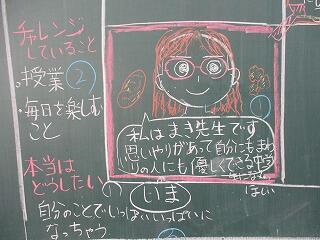 チャレンジ
していること
・授業②
・毎日を楽しむ
こと
①
私はまき先生です
思いやりがあって自分にもまわ
りの人にも優しくできる
ほしい
本当は
どうしたいの
いま
自分のことでいっぱいいっぱいに
なっちゃう